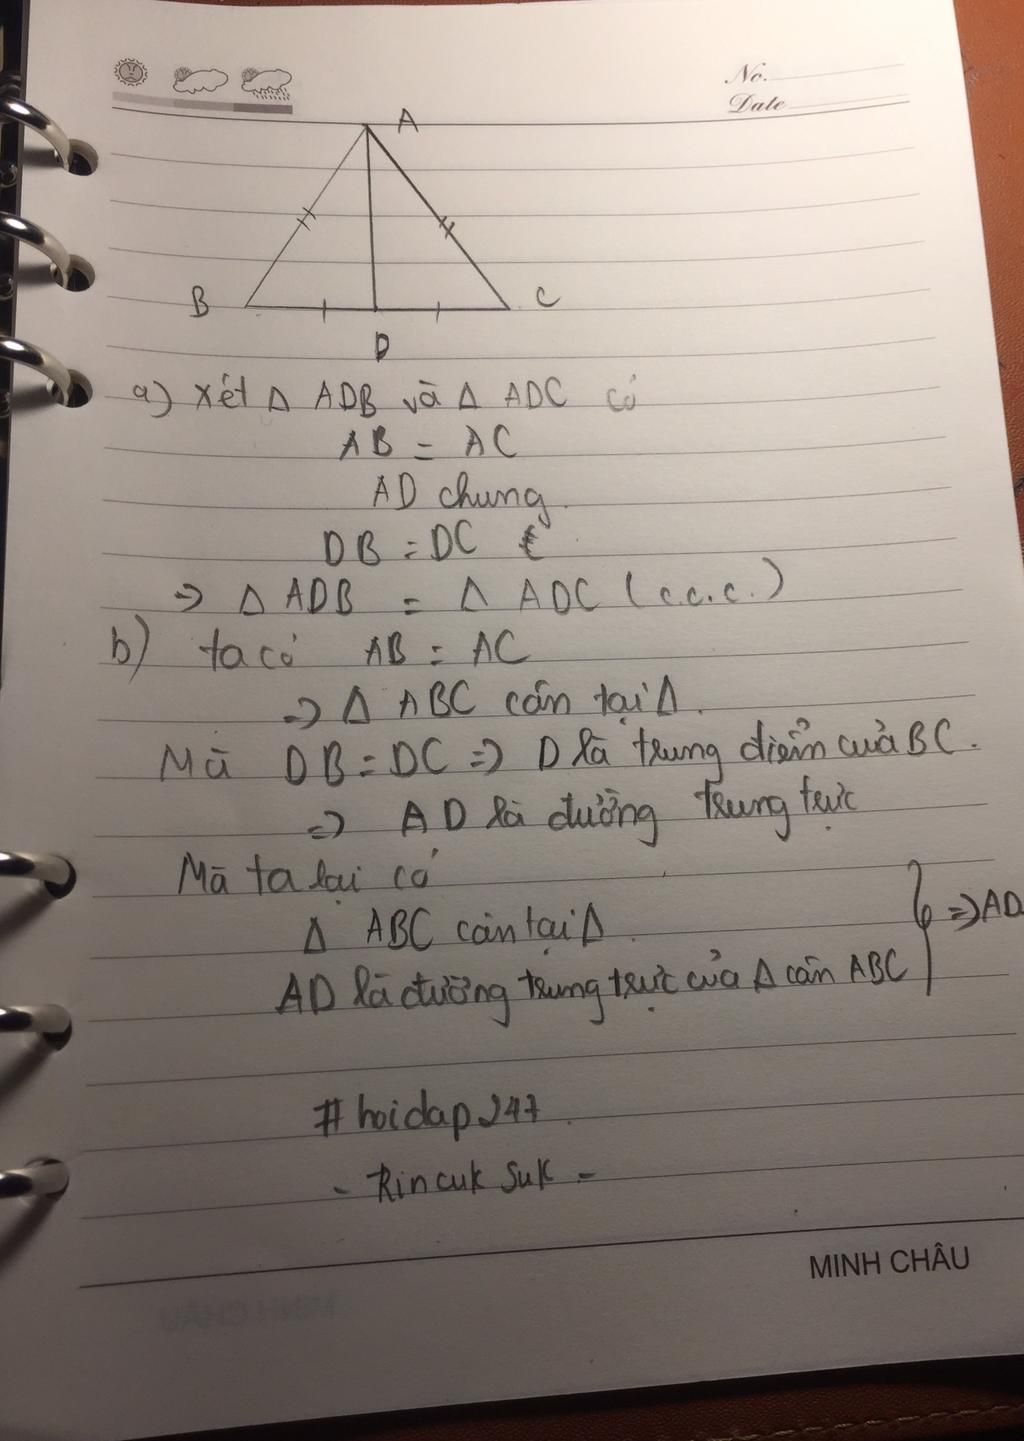 No.
Date
A
B
C
D
a) Xét Δ ADB và Δ ADC có
AB = AC
AD chung
DB = DC
=> Δ ADB = Δ ADC (c.c.c.)
b) ta có AB = AC
=> Δ ABC cân tại Δ.
Mà DB = DC => D là trung điểm của BC.
=> AD là đường trung trực
Mà ta lại có
Δ ABC cân tại Δ
} => AD
AD là đường trung trực của Δ cân ABC
#hoidap247
- Rincuk Suk -
MINH CHÂU